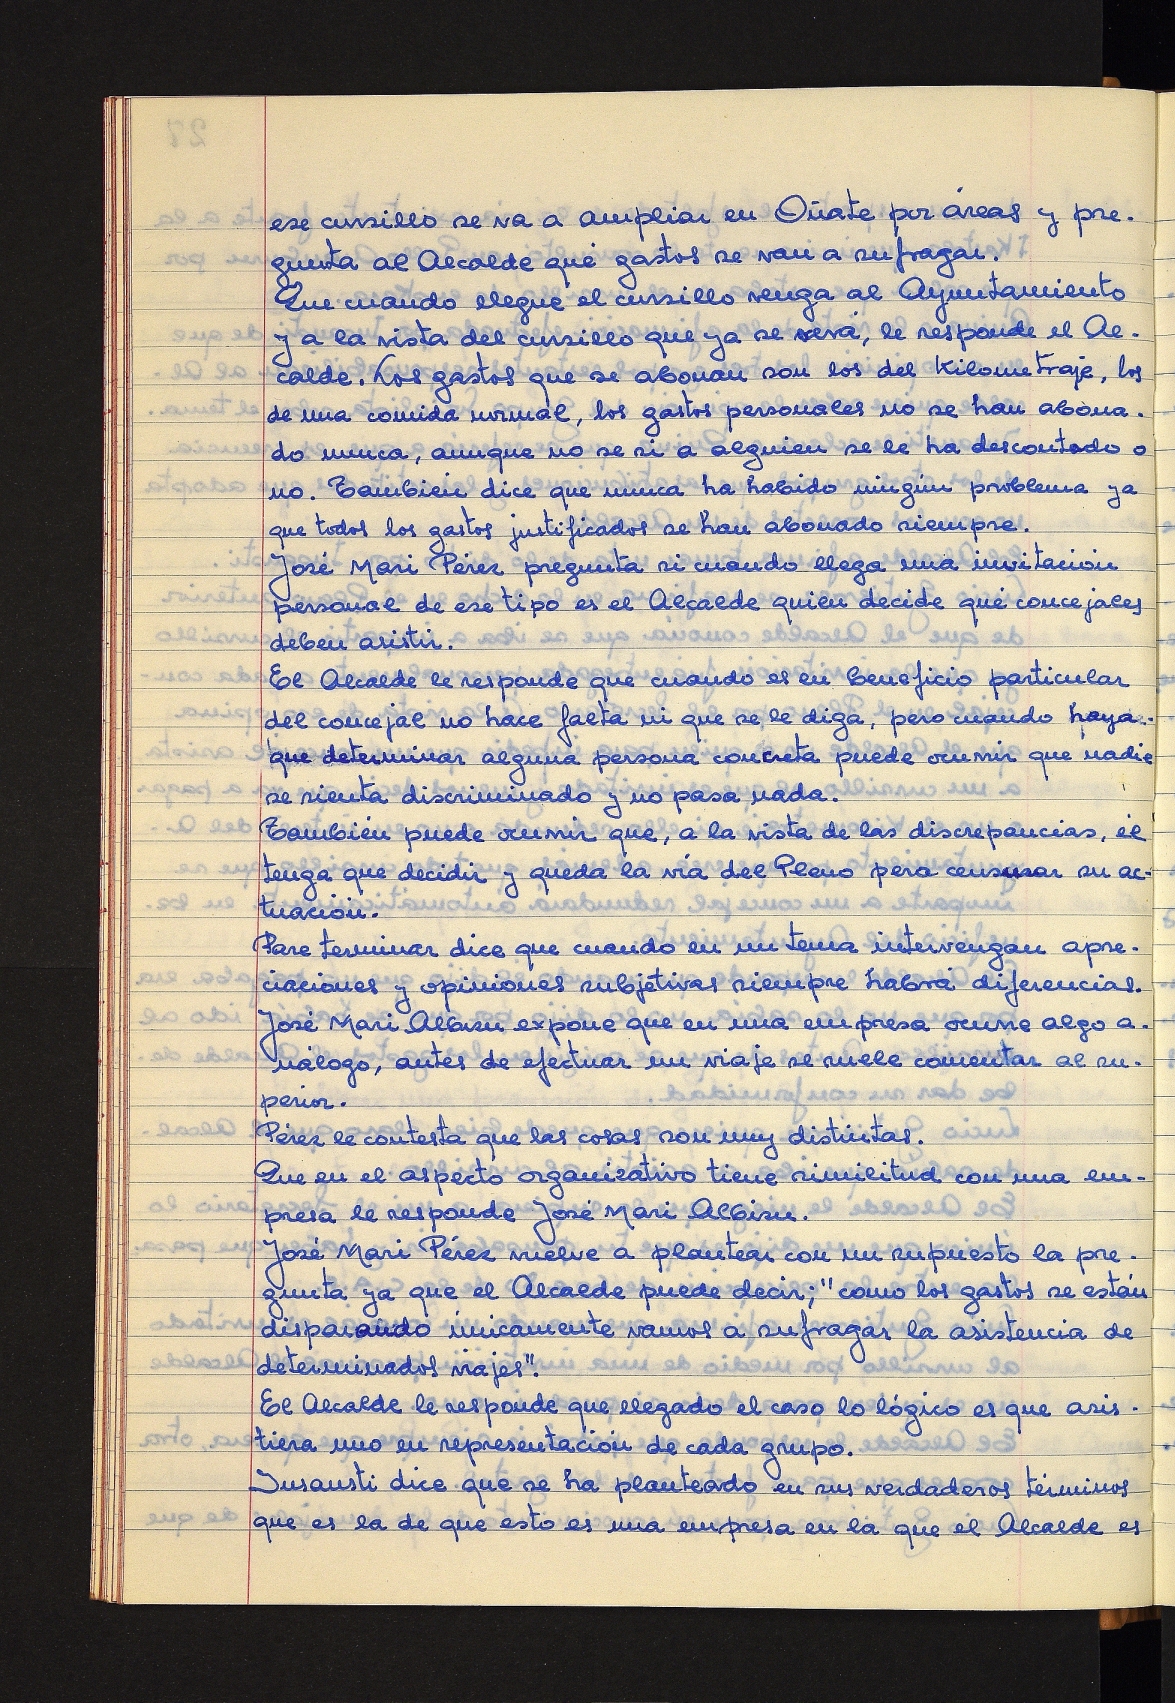 ese cursillo se va a ampliar en Oñate por áreas y pre-
gunta al Alcalde qué gastos se van a sufragar.
Que cuando llegue el cursillo venga al Ayuntamiento
y a la vista del cursillo que ya se verá, le responde el Al-
calde. Los gastos que se abonan son los del Kilometraje, los
de una comida normal, los gastos personales no se han abona-
do nunca, aunque no se si a alguien se le ha descontado o
no. También dice que nunca ha habido ningún problema ya
que todos los gastos justificados se han abonado siempre.
José Mari Pérez pregunta si cuando llega una invitación
personal de ese tipo es el Alcalde quien decide qué concejales
deben asistir.
El Alcalde le responde que cuando es en beneficio particular
del concejal no hace falta ni que se le diga, pero cuando haya
que determinar alguna persona concreta puede ocurrir que nadie
se sienta discriminado y no pasa nada.
También puede ocurrir que, a la vista de las discrepancias, él
tenga que decidir y queda la vía del Pleno para censurar su ac-
tuación.
Para terminar dice que cuando en un tema intervengan apre-
ciaciones y opiniones subjetivas siempre habrá diferencias.
José Mari Albisu expone que en una empresa ocurre algo a-
nálogo, antes de efectuar un viaje se suele comentar al su-
perior.
Pérez le contesta que las cosas son muy distintas.
Que en el aspecto organizativo tiene similitud con una em-
presa le responde José Mari Albisu.
José Mari Pérez vuelve a plantear con un supuesto la pre-
gunta ya que el Alcalde puede decir; "como los gastos se están
disparando únicamente vamos a sufragar la asistencia de
determinados viajes".
El Alcalde le responde que llegado el caso lo lógico es que asis-
tiera uno en representación de cada grupo.
Insausti dice que se ha planteado en sus verdaderos términos
que es la de que esto es una empresa en la que el Alcalde es